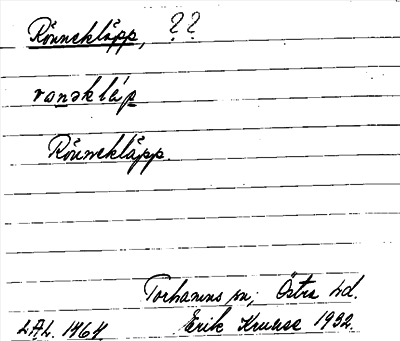 Rönneklåpp, ??
rønəklåp
Rönneklåpp.
Torhamns sn; Östra hd.
L.A.L. 1464 Erik Kruuse 1932.